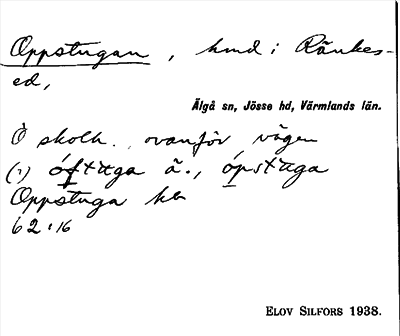 Oppstugan, hmd i Ränkes-
ed,
Älgå sn, Jösse hd, Värmlands län.
Ö skolh., ovanför vägen
Oppstuga
62:16
ELOV SILFORS 1938.